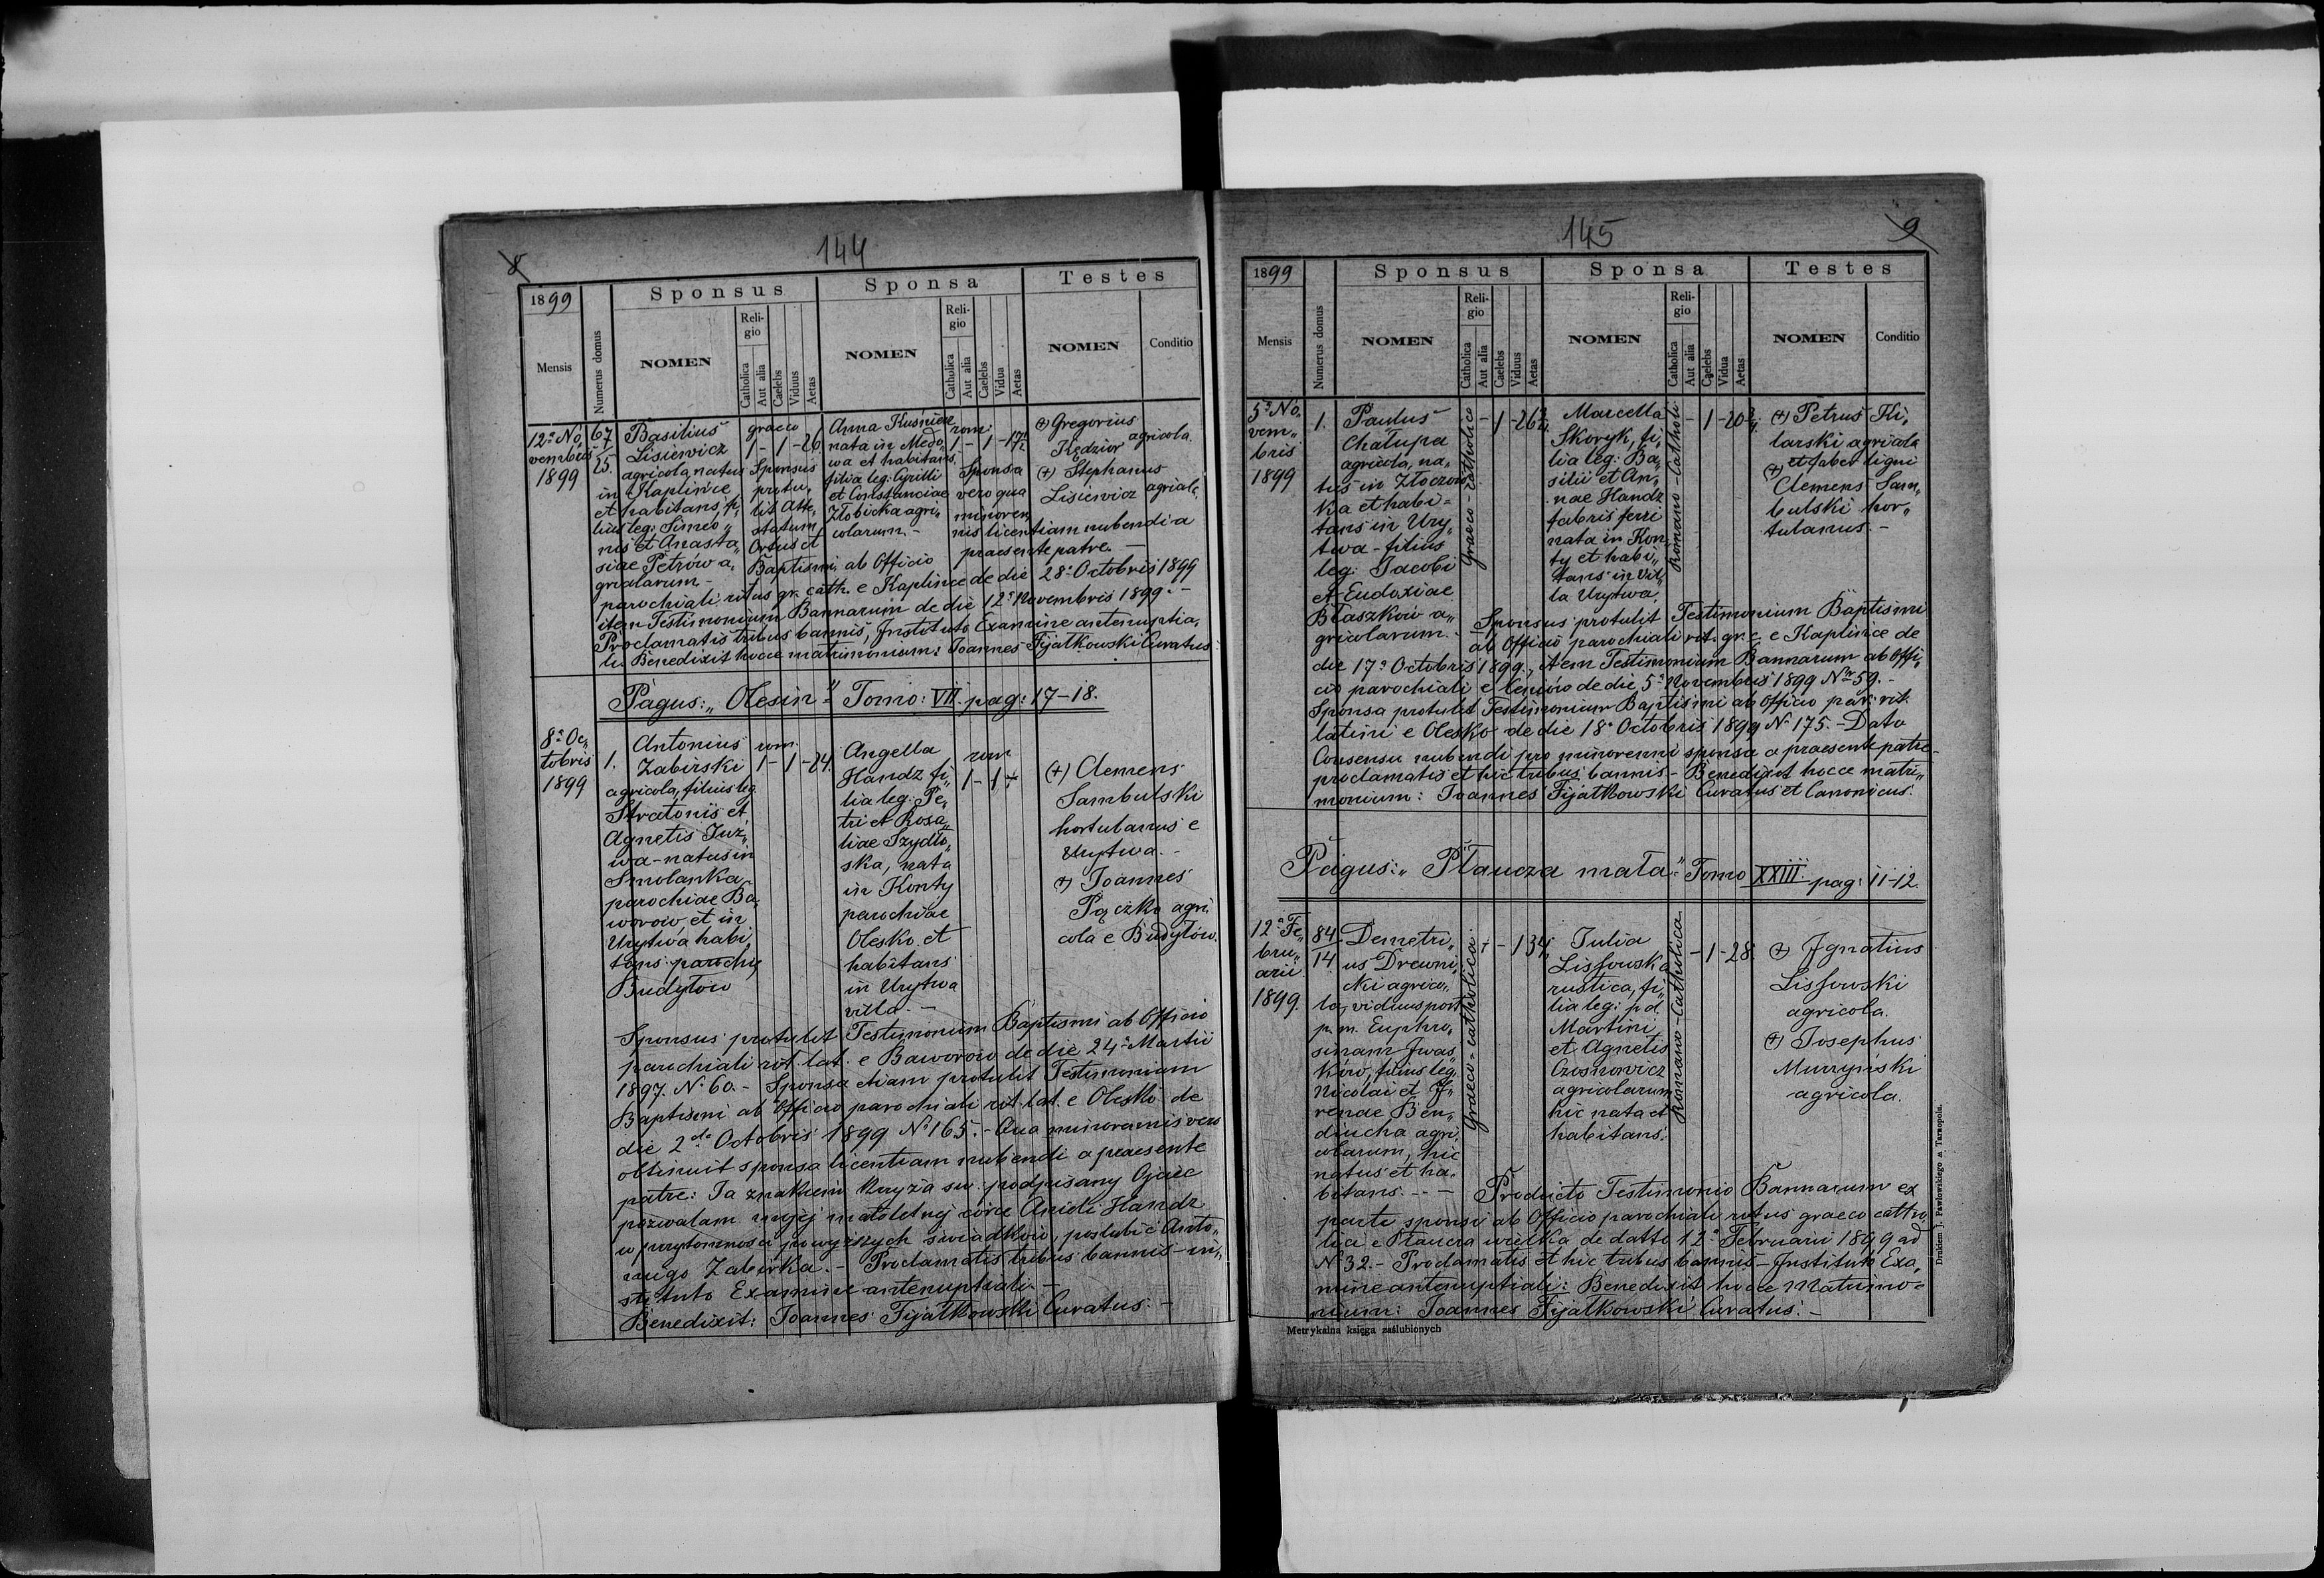 8
144
1899
Sponsus
Sponsa
Testes
Mensis
Numerus domus
NOMEN
Religio
Catholica
Aut alia
Caelebs
Viduus
Aetas
NOMEN
Religio
Catholica
Aut alia
Caelebs
Vidua
Aetas
NOMEN
Conditio
12a No„
vembris
1899
67
25.
Basilius
Lisiewicz
agricola, natus
in Kaplińce
et habitans, fi„
lius leg: Simeo„
nis et Anasta„
siae Petrów a„
gricolarum -
graeco
1 - 1 - 26
Sponsus
protu„
lit Atte„
statum
Ortus et
Baptismi ab Officio
Anna Kuśnierz
nata in Medo„
wa et habitans,
filia leg: Cyrilli
et Constanciae
Złobicka agri„
colarum. -
rom:
1 - 1 - 17½
Sponsa
vero qua
minoren
nis licentiam nubendi a
praesente patre. -
(+) Gregorius
Kędzior agricola.
(+) Stephanus
Lisiewicz agricola
parochiali ritus gr. cath. e Kaplińce de die 28a Octobris 1899
item Testimonium Bannarum de die 12a Novembris 1899. -
Proclamatis tribus bannis, Instituto Examine antenuptia„
li. Benedixit hocce matrimonium: Joannes Fijałkowski Curatus.
Pagus: „Olesin" Tomo: VII. pag: 17-18.
8a Oc„
tobris
1899
1.
Antonius
Zabirski
agricola, filius leg.
Stratonis et
Agnetis Juz„
wa - natus in
Smolanka
parochiae Ba„
worów, et in
Urytwa habi„
tans parochy
Budyłów
rom.
1 - 1 - 24.
Angella
Handz fi„
lia leg: Pe„
tri et Rosa„
liae Szydło„
ska, nata
in Konty
parochiae
Olesko et
habitans
in Urytwa
villa. -
rom
1 - 1
(+) Clemens
Sambulski
hortulanus e
Urytwa. -
(+) Joannes
Pączko agri„
cola e Budyłów.
Sponsus protulit Testimonium Baptismi ab Officio
parochiali rit. lat. e Baworów de die 24a Martii
1897. No 60. - Sponsa etiam protulit Testimonium
Baptismi ab Officio parochiali rit. lat. e Olesko de
die 2da Octobris 1899 No 165. - Qua minorennis vero
obtinuit sponsa licentiam nubendi a praesente
patre: Ja znakiem krzyża św. podpisany Ojciec
pozwalam mojej małoletniej córce Anieli Handz
w przytomności powyższych świadków, poślubić Anto„
niego Zabirka. - Proclamatis tribus bannis - in„
stituto Examine antenuptiali. -
Benedixit: Joannes Fijałkowski Curatus. -
145
9
1899
Sponsus
Sponsa
Testes
Mensis
Numerus domus
NOMEN
Religio
Catholica
Aut alia
Caelebs
Viduus
Aetas
NOMEN
Religio
Catholica
Aut alia
Caelebs
Vidua
Aetas
NOMEN
Conditio
5a No„
vem„
bris
1899
1.
Paulus
Chałupa
agricola, na„
tus in Złoczow
ka et habi=
tans in Ury„
twa - filius
leg: Jacobi
et Eudoxiae
Błaszków a„
gricolarum. -
Graeco - catholico
- 1 - 26¾
Marcella
Skoryk, fi„
lia leg: Ba„
silii et An„
nae Handz
fabris ferri
nata in Kon„
ty et habi„
tans in vil„
la Urytwa.
Romano - Catholi.
- 1 - 20¾
(+) Petrus Ki„
larski agricola
et faber ligni
(+) Clemens Sam„
bulski hor„
tulanus. -
Sponsus protulit Testimonium Baptismi
ab Officio parochiali rit. gr. c. e Kaplińce de
die 17a Octobris 1899, item Testimonium Bannarum ab Offi„
cio parochiali e Ceniów de die 5a Novembris 1899 Nro 59. -
Sponsa protulit Testimonium Baptismi ab Officio par. rit.
latini e Olesko de die 18a Octobris 1899 No 175. - Dato
Consensu nubendi pro minorenni sponsa a praesente patre -
proclamatis et hic tribus bannis. - Benedixit hocce matri„
monium: Joannes Fijałkowski Curatus et Canonicus.
Pagus: „Płaucza mała" Tomo XXIII pag: 11-12.
12a Fe„
bru„
arii
1899.
84
14.
Demetri„
us Drewni„
cki agrico„
la, viduus post
p. m. Euphro„
sinam Iwas„
ków, filius leg.
Nicolai et I„
renae Ben„
diucha agri„
colarum, hic
natus et ha„
bitans. - -
Graeco - catholica
- 1 34
Julia
Lissowska
rustica, fi„
lia leg: p d.
Martini
et Agnetis
Czosnowicz
agricolarum
hic nata et
habitans.
Romano - Catholica
- 1 - 28.
(+) Ignatius
Lissowski
agricola.
(+) Josephus
Murzyński
agricola.
Producto Testimonio Bannarum ex
parte sponsi ab Officio parochiali ritus graeco catho
lici e Płaucza wielka de datto 12a Februarii 1899 ad
No 32. - Proclamatis et hic tribus bannis - Instituto Exa„
mine antenuptiali: Benedixit hocce Matrimo=
nium: Joannes Fijałkowski Curatus. -
Metrykalna księga zaślubionych
Drukiem J. Pawłowskiego w Tarnopolu.